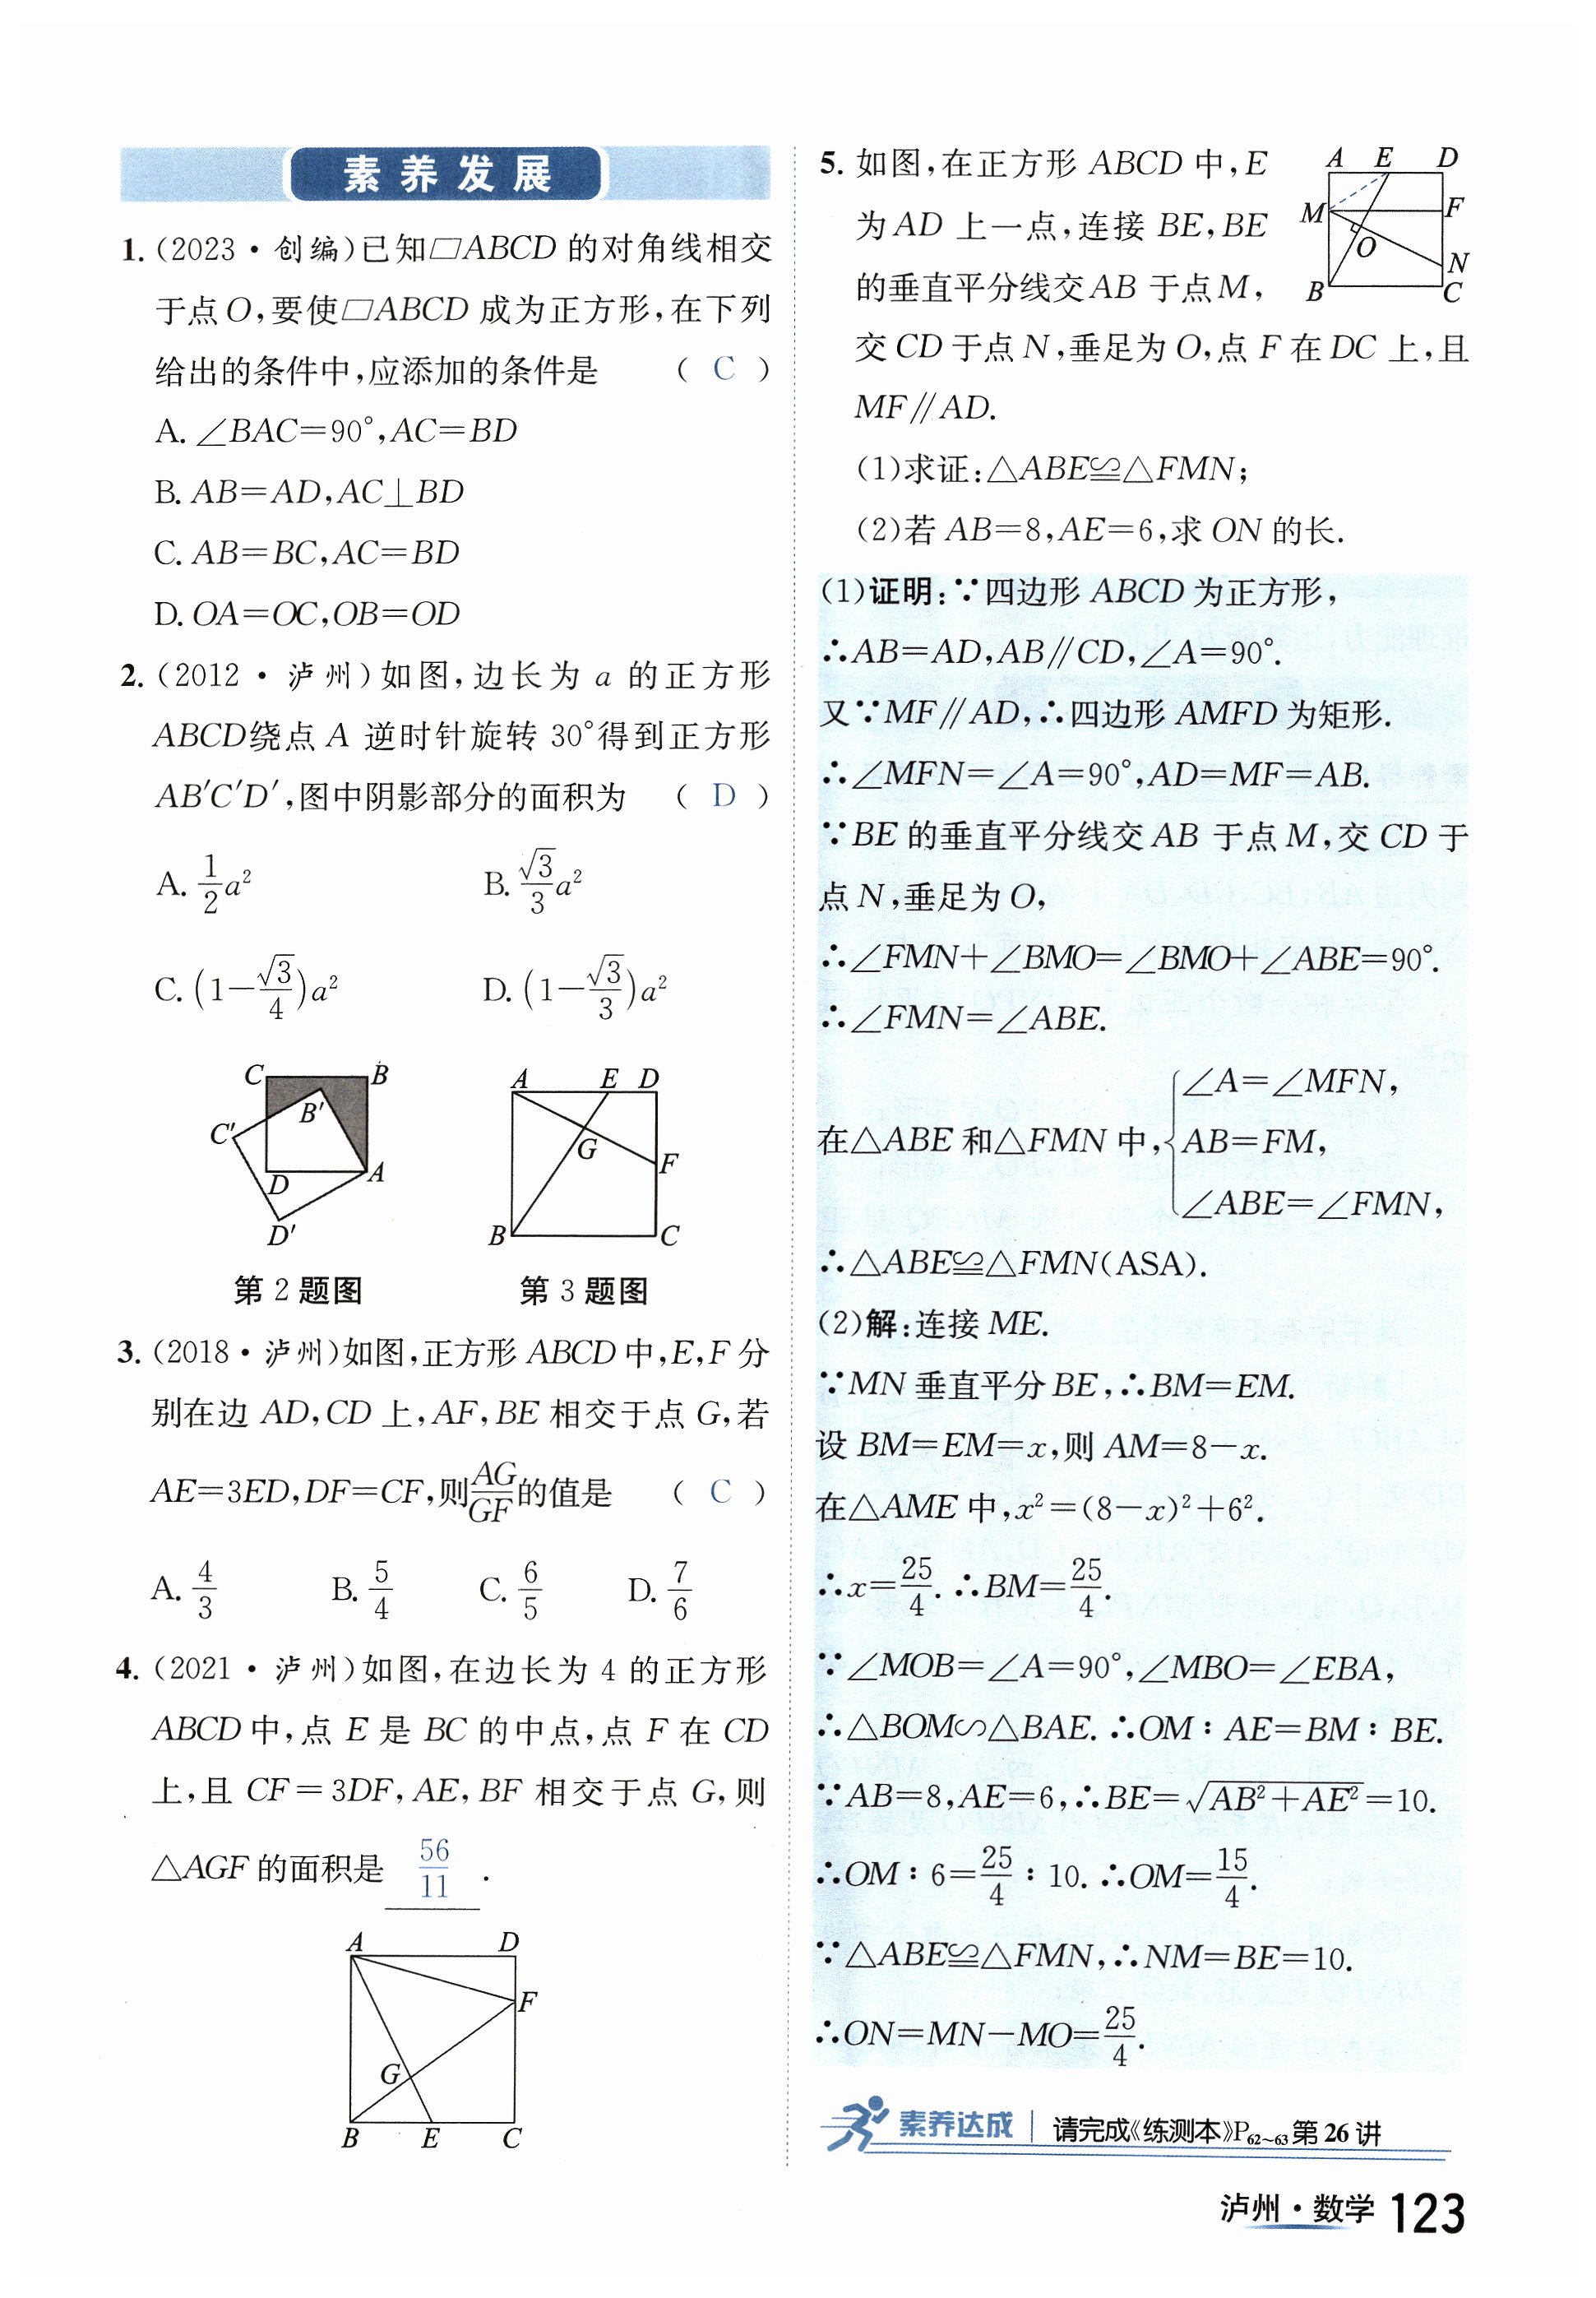 素养发展
1.(2023·创编)已知▱ABCD的对角线相交
于点O,要使▱ABCD成为正方形,在下列
给出的条件中,应添加的条件是 ( C )
A.∠BAC=90°,AC=BD
B.AB=AD,AC⊥BD
C.AB=BC,AC=BD
D.OA=OC,OB=OD
2.(2012·泸州)如图,边长为a的正方形
ABCD绕点A逆时针旋转30°得到正方形
AB′C′D′,图中阴影部分的面积为 ( D )
A.1/2 a² B.√3/3 a²
C.(1-√3/4)a² D.(1-√3/3)a²
C B
B′
C′
D A
D′
第2题图
A E D
G
F
B C
第3题图
3.(2018·泸州)如图,正方形ABCD中,E,F分
别在边AD,CD上,AF,BE相交于点G,若
AE=3ED,DF=CF,则AG/GF的值是 ( C )
A.4/3 B.5/4 C.6/5 D.7/6
4.(2021·泸州)如图,在边长为4的正方形
ABCD中,点E是BC的中点,点F在CD
上,且CF=3DF,AE,BF相交于点G,则
△AGF的面积是 56/11 .
A D
F
G
B E C
5.如图,在正方形ABCD中,E
为AD上一点,连接BE,BE
的垂直平分线交AB于点M,
交CD于点N,垂足为O,点F在DC上,且
MF∥AD.
A E D
M F
O
N
B C
(1)求证:△ABE≌△FMN;
(2)若AB=8,AE=6,求ON的长.
(1)证明:∵四边形ABCD为正方形,
∴AB=AD,AB∥CD,∠A=90°.
又∵MF∥AD,∴四边形AMFD为矩形.
∴∠MFN=∠A=90°,AD=MF=AB.
∵BE的垂直平分线交AB于点M,交CD于
点N,垂足为O,
∴∠FMN+∠BMO=∠BMO+∠ABE=90°.
∴∠FMN=∠ABE.
在△ABE和△FMN中,{∠A=∠MFN,
AB=FM,
∠ABE=∠FMN,
∴△ABE≌△FMN(ASA).
(2)解:连接ME.
∵MN垂直平分BE,∴BM=EM.
设BM=EM=x,则AM=8-x.
在△AME中,x²=(8-x)²+6².
∴x=25/4.∴BM=25/4.
∵∠MOB=∠A=90°,∠MBO=∠EBA,
∴△BOM∽△BAE.∴OM∶AE=BM∶BE.
∵AB=8,AE=6,∴BE=√(AB²+AE²)=10.
∴OM∶6=25/4∶10.∴OM=15/4.
∵△ABE≌△FMN,∴NM=BE=10.
∴ON=MN-MO=25/4.
素养达成 请完成《练测本》P62~63第26讲
泸州·数学 123